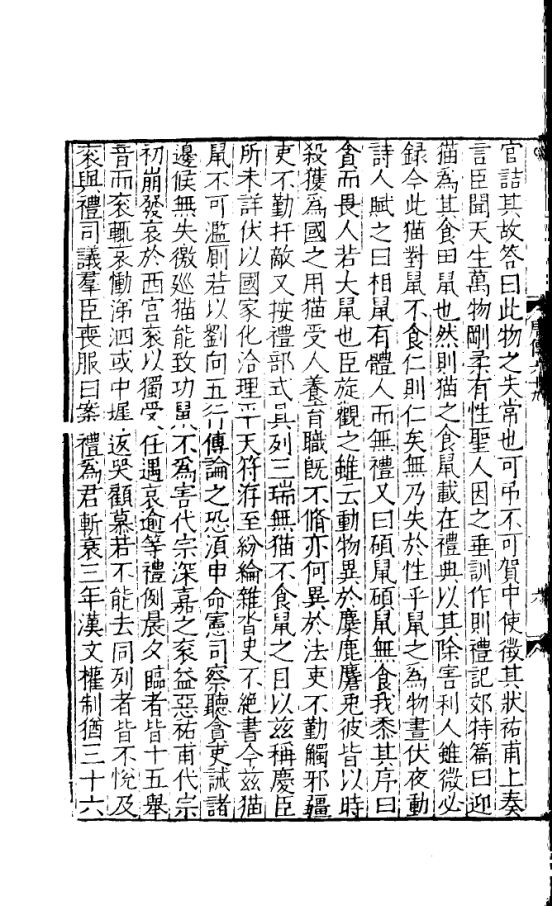 官詰其故答曰此物之失常也可弔不可賀中使徵其狀祐甫上奏
言臣聞天生萬物剛柔有性聖人因之垂訓作則禮記郊特篇曰迎
猫為其食田鼠也然則猫之食鼠載在禮典以其除害利人雖微必
録今此猫對鼠不食仁則仁矣無乃失於性乎鼠之為物晝伏夜動
詩人賦之曰相鼠有體人而無禮又曰碩鼠碩鼠無食我黍其序曰
貪而畏人若大鼠也臣旋觀之雖云動物異於麋鹿麏兎彼皆以時
殺獲為國之用猫受人養育職既不脩亦何異於法吏不勤觸邪疆
吏不勤扞敵又按禮部式具列三瑞無猫不食鼠之目以兹稱慶臣
所未詳伏以國家化洽理平天符洊至紛綸雜沓史不絶書今兹猫
鼠不可濫厠若以劉向五行傳論之恐須申命憲司察聽貪吏誡諸
邊候無失徼廵猫能致功鼠不為害代宗深嘉之衮益惡祐甫代宗
初崩發哀於西宮衮以獨受任遇哀逾等禮例晨夕臨者皆十五舉
音而衮輒哀慟涕泗或中墀返哭顧慕若不能去同列者皆不悅及
衮與禮司議羣臣喪服曰案禮為君斬衰三年漢文權制猶三十六